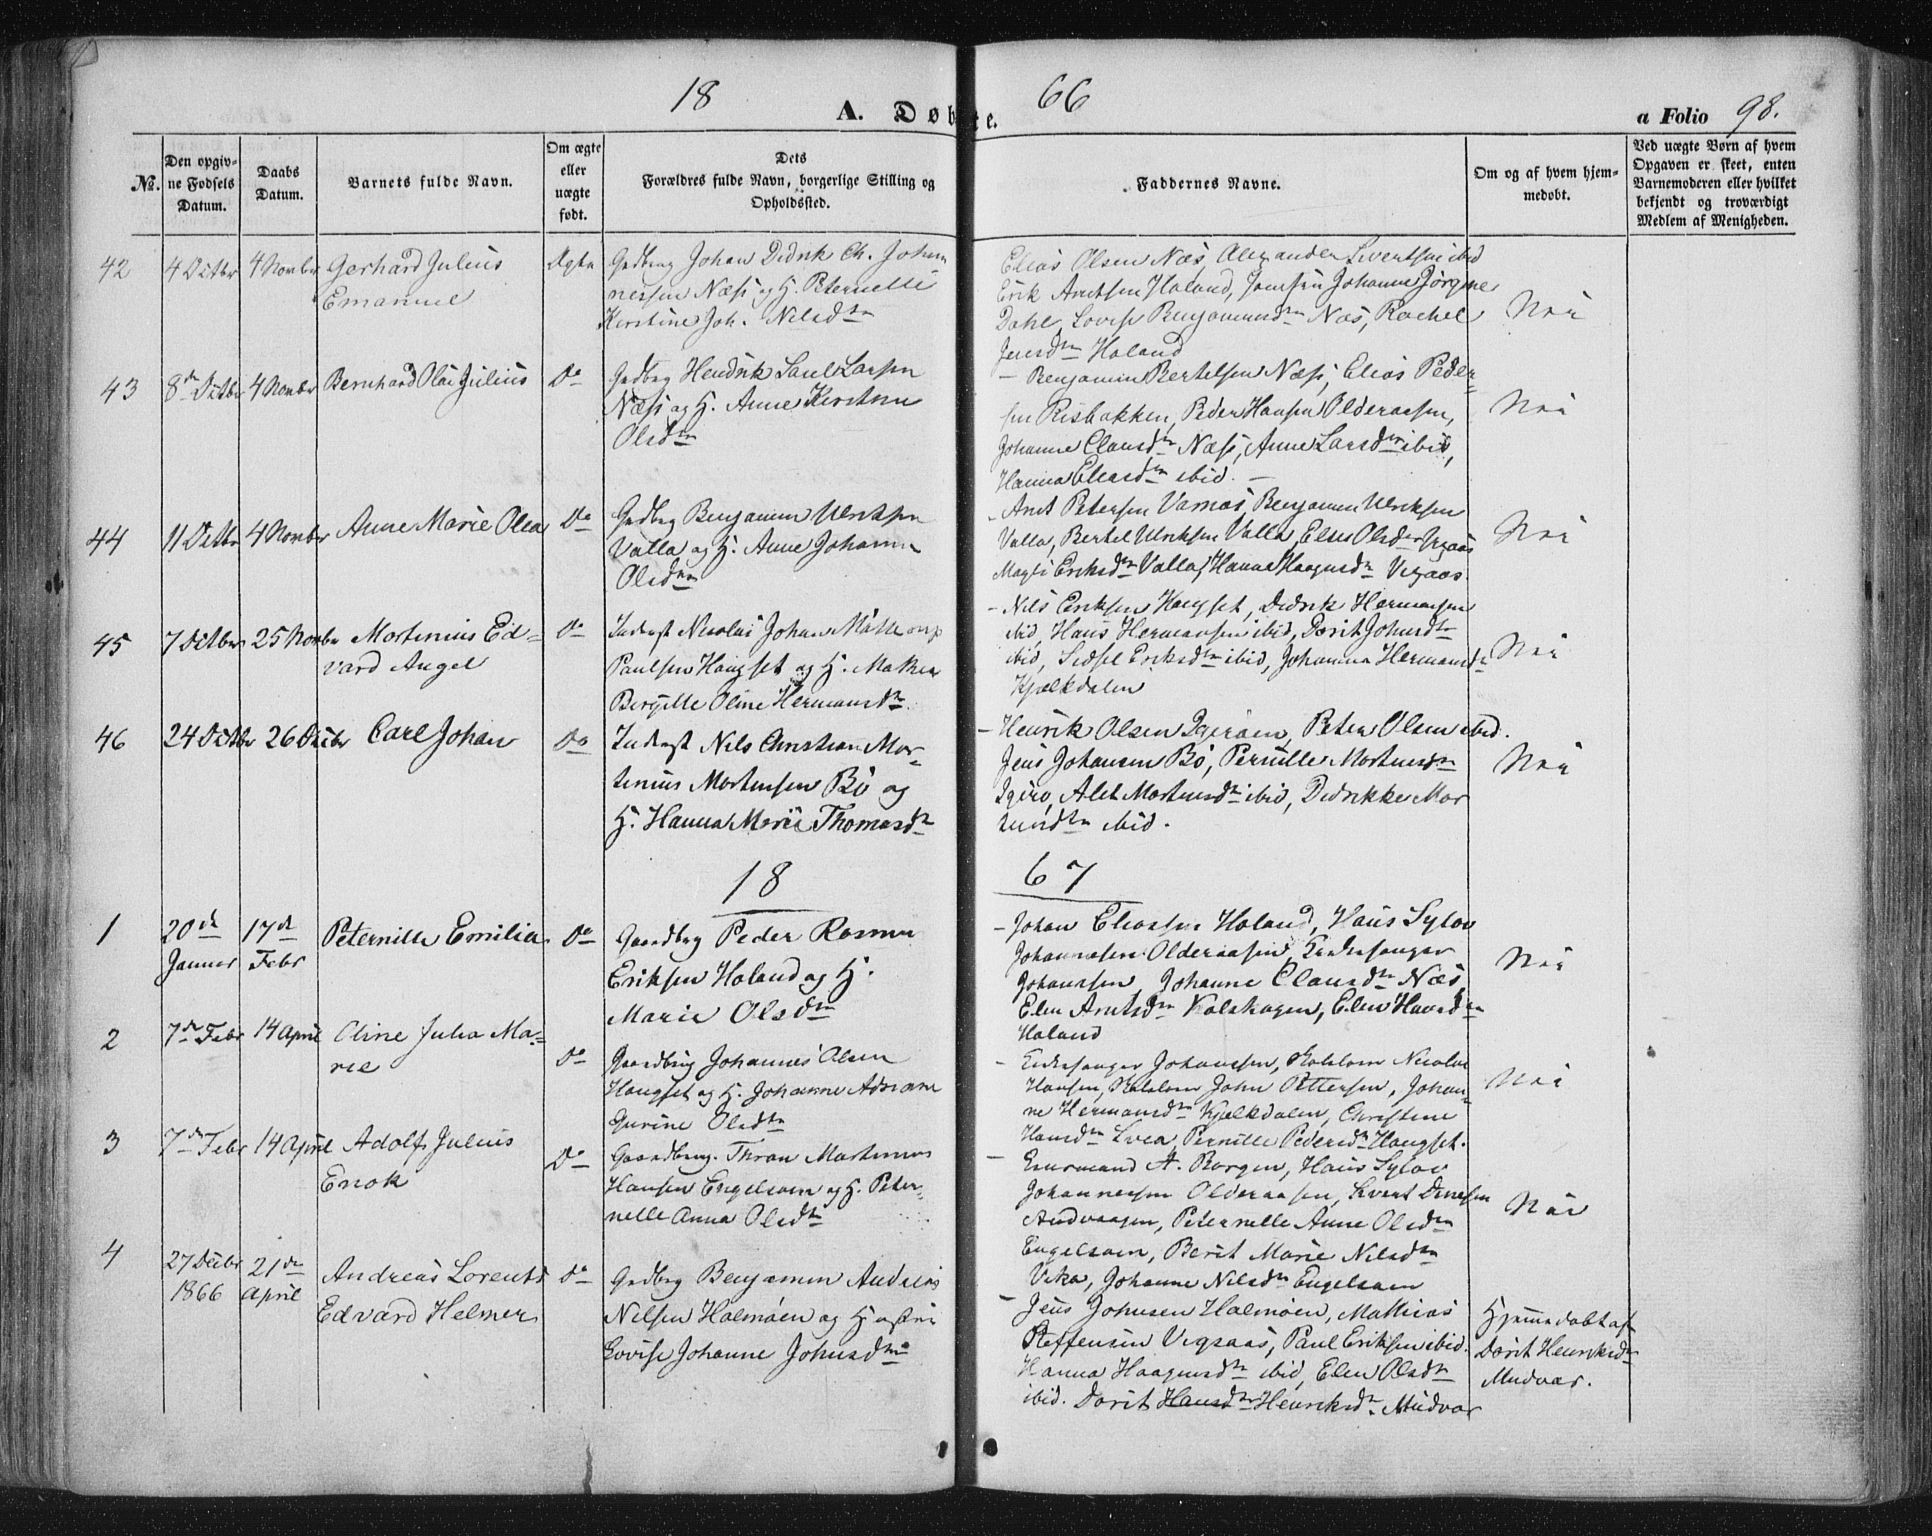 18 66
A. Døbte.
a Folio 98.
No.
Den opgivne Fødsels Datum.
Daabs Datum.
Barnets fulde Navn.
Om ægte eller uægte født.
Dets
Forældres fulde Navn, borgerlige Stilling og
Opholdssted.
Faddernes Navne.
Om og af hvem hjemmedøbt.
Ved uægte Børn af hvem
Opgaven er skeet, enten
Barnemoderen eller hvilket
bekjendt og troværdigt
Medlem af Menigheden.
42 4 Octbr 4 Novbr Gerhard Julius
Emanuel
Ægte
Gadbrg Johan Didrik Ch. Johan
nessen Næss og H. Peternelle
Kirstine Joh. Nilsdtr
Elias Olsen Næs, Alexander Sivertsen ibid
Erik Arntsen Holand, Johanne Jørgine
Dahl, Lovise Benjaminsdtr Næs, Rachel
Jensdtr Holand
Nei
43 8de Octbr 4 Novbr Bernhard Olai Julius Do
Gadbrg Hendrik Paul Larsen
Næss og H. Anne Kirstine
Olsdtr
- Benjamin Bertelsen Næss, Elias Peder-
sen Risbakken, Peder Hansen Olderaasen,
Johanne Clausdtr Næss, Anne Larsdtr ibid,
Hanna Eliasdtr ibid. -
Nei
44 11 Octbr 4 Novbr Anne Marie Olea Do
Gadbrg Benjamin Ulriksen
Valla og H. Anne Johanna
Olsdtr
- Arnt Petersen Varnæs, Benjamin Ulriksen
Valla, Bertel Ulriksen Valla, Elen Olsdtr Vigaas
Magli Eriksdtr Valla, Hanna Haagensdtr Vigaas.
Nei
45 7 Octbr 25 Novbr Mortinius Ed-
vard Angel
Do
Inderst Nicolai Johan
Paulsen Haugset og H.
Birgitte Oline Hermansdtr.
- Nils Eriksen Haugset, Didrik Hermansen
ibid, Hans Hermansen ibid, Dorit Johnsdtr
ibid, Sidsel Eriksdtr ibid, Johanna Hermansdtr
Kjælkdalen
Nei
46 24 Octbr 26 Decbr Carl Johan Do
Inderst Nils Christian Mor-
tinius Mortensen Bø og
H. Hanna Marie Thomasdtr
- Henrik Olsen Igerøen, Peter Olsen ibid.
Jens Johansen Bø, Pernille Mortensdtr
Igerø, Alet Mortensdtr ibid, Didrikke Mor
tensdtr ibid.
Nei
18 67
1 20de
Januar
17de
Febr
Peternille Emilia Do
Gaardbrg Peder Rasmus
Eriksen Holand og H.
Marie Olsdtr
- Johan Eliassen Holand, Hans Sylov
Johannesen Olderaasen, Kirkesanger
Johansen, Johanne Clausdtr Næs,
Elen Arntsdtr Kalskagen, Elen Hansdtr
Holand
Nei
2 7de Febr 14 April Oline Julia Ma-
rie
Do
Gaardbrg Johannes Olsen
Haugset og H. Johanne Adriane
Gurine Olsdtr
- Kirkesanger Johansen, Nicolai
Hansen, John Pettersen, Johan-
ne Hermansdtr Kjelkdalen, Christine
Hansdtr Pernille Pedersdtr Haugset.
Nei
3 7de Febr 14 April Adolf Julius
Enok
Do
Gaardbrg. Thron Martinus
Hansen Engelsøen og H. Peter-
nelle Anna Olsdtr
- A. Borgen, Hans Sylov
Johannesen Olderaasen, Sivert
Andvaagen, Peternelle Anne Olsdtr
Engelsøen, Berit Marie Nilsdtr
Vika, Johanne Nilsdtr Engelsøen
Nei
4 27 Decbr
1866
21de
April
Andreas Lorents
Edvard Helmer
Do
Gadbrg Benjamin Andreas
Nilsen Halmøen og H
Lovise Johanne Johnsdtr
- Jens Johnsen Halmøen, Mathias
Steffensen Vigaas, Paul Eriksen ibid.
Hanna Haagensdtr ibid, Elen Olsdtr
ibid. Dorit Hansdtr Henriksdtr. Mudvær
Hjemmedøbt af
Dorit Henriksdtr
Mudvær.